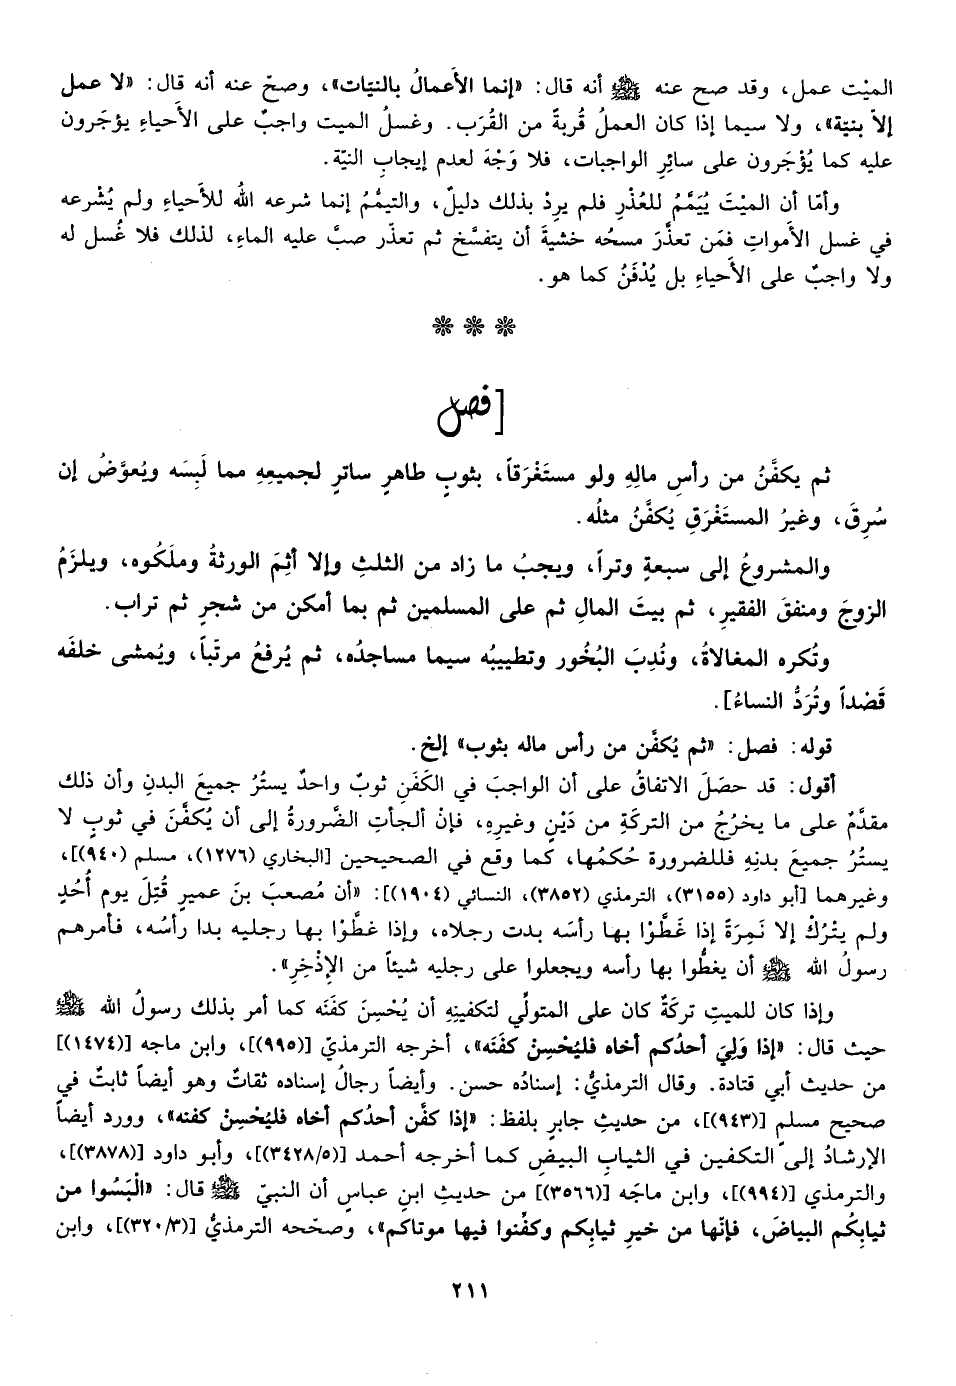 الميْت عمل، وقد صح عنه ﷺ أنه قال: «إنما الأعمالُ بالنيّات»، وصحّ عنه أنه قال: «لا عمل
إلاّ بنيّة»، ولا سيما إذا كان العملُ قُربةً من القُرَب. وغسلُ الميت واجبٌ على الأحياءِ يؤجَرون
عليه كما يُؤْجَرون على سائرِ الواجبات، فلا وَجْهَ لعدم إيجابِ النيّة.
وأمّا أن الميْتَ يُيَمَّمُ للعُذْرِ فلم يردْ بذلك دليلٌ، والتيمُّمُ إنما شرعه اللهُ للأحياءِ ولم يُشْرعه
في غسل الأمواتِ فمَن تعذَّرَ مسحُه خشيةَ أن يتفسَّخ ثم تعذّر صبَّ عليه الماءِ، لذلك فلا غُسل له
ولا واجبٌ على الأحياءِ بل يُدْفَنُ كما هو.
❊ ❊ ❊
[فصل
ثم يكفَّنُ من رأسِ مالِهِ ولو مستغْرَقاً، بثوبٍ طاهرٍ ساترٍ لجميعِهِ مما لَبِسَه ويُعوَّضُ إن
سُرِقَ، وغيرُ المستَغْرَقِ يُكفَّنُ مثلُه.
والمشروعُ إلى سبعةٍ وتراً، ويجبُ ما زاد من الثلثِ وإلا أثِمَ الورثةُ وملَكُوه، ويلزَمُ
الزوجَ ومنفقَ الفقيرِ، ثم بيتَ المالِ ثم على المسلمين ثم بما أمكن من شجرٍ ثم تراب.
وتُكره المغالاةُ، ونُدِبَ البُخُور وتطييبُه سيما مساجدُه، ثم يُرفعُ مرتّباً، ويُمشى خلفَه
قَصْداً وتُرَدُّ النساءُ].
قوله: فصل: «ثم يُكفَّن من رأس ماله بثوب» إلخ.
أقول: قد حصَلَ الاتفاقُ على أن الواجبَ في الكَفَنِ ثوبٌ واحدٌ يستُرُ جميعَ البدنِ وأن ذلك
مقدَّمٌ على ما يخرُجُ من التركةِ من دَيْنٍ وغيرِه، فإنْ ألجأتِ الضَّرورةُ إلى أن يُكفَّنَ في ثوبٍ لا
يستُرُ جميعَ بدنِهِ فللضرورة حُكمُها، كما وقع في الصحيحين [البخاري (١٢٧٦)، مسلم (٩٤٠)]،
وغيرهما [أبو داود (٣١٥٥)، الترمذي (٣٨٥٢)، النسائي (١٩٠٤)]: «أن مُصعبَ بنَ عميرٍ قُتِلَ يوم أُحُدٍ
ولم يتْرُكْ إلا نَمِرَةً إذا غَطَّوْا بها رأسَه بدت رجلاه، وإذا غطَّوْا بها رجليه بدا رأسُه، فأمرهم
رسولُ الله ﷺ أن يغطُّوا بها رأسه ويجعلوا على رجليه شيئاً من الإِذْخِرِ».
وإذا كان للميتِ تركَةٌ كان على المتولِّي لتكفينِهِ أن يُحْسِنَ كفَنَه كما أمر بذلك رسولُ الله ﷺ
حيث قال: «إذا وَلِيَ أحدُكم أخاه فليُحْسِنْ كفَنَه»، أخرجه الترمذيّ [(٩٩٥)]، وابن ماجه [(١٤٧٤)]
من حديث أبي قتادة. وقال الترمذيُّ: إسنادُه حسن. وأيضاً رجالُ إسناده ثقاتٌ وهو أيضاً ثابتٌ في
صحيح مسلم [(٩٤٣)]، من حديثِ جابرٍ بلفظ: «إذا كفّن أحدُكم أخاه فليُحْسِنْ كفنه»، وورد أيضاً
الإرشادُ إلى التكفين في الثيابِ البيضِ كما أخرجه أحمد [(٣٤٢٨/٥)]، وأبو داود [(٣٨٧٨)]،
والترمذي [(٩٩٤)]، وابن ماجَه [(٣٥٦٦)] من حديثِ ابنِ عباسٍ أن النبيّ ﷺ قال: «الْبَسُوا من
ثيابِكُم البياضَ، فإنّها من خيرِ ثيابِكم وكفِّنوا فيها موتاكم»، وصحّحه الترمذيُّ [(٣٢٠/٣)]، وابن
٢١١